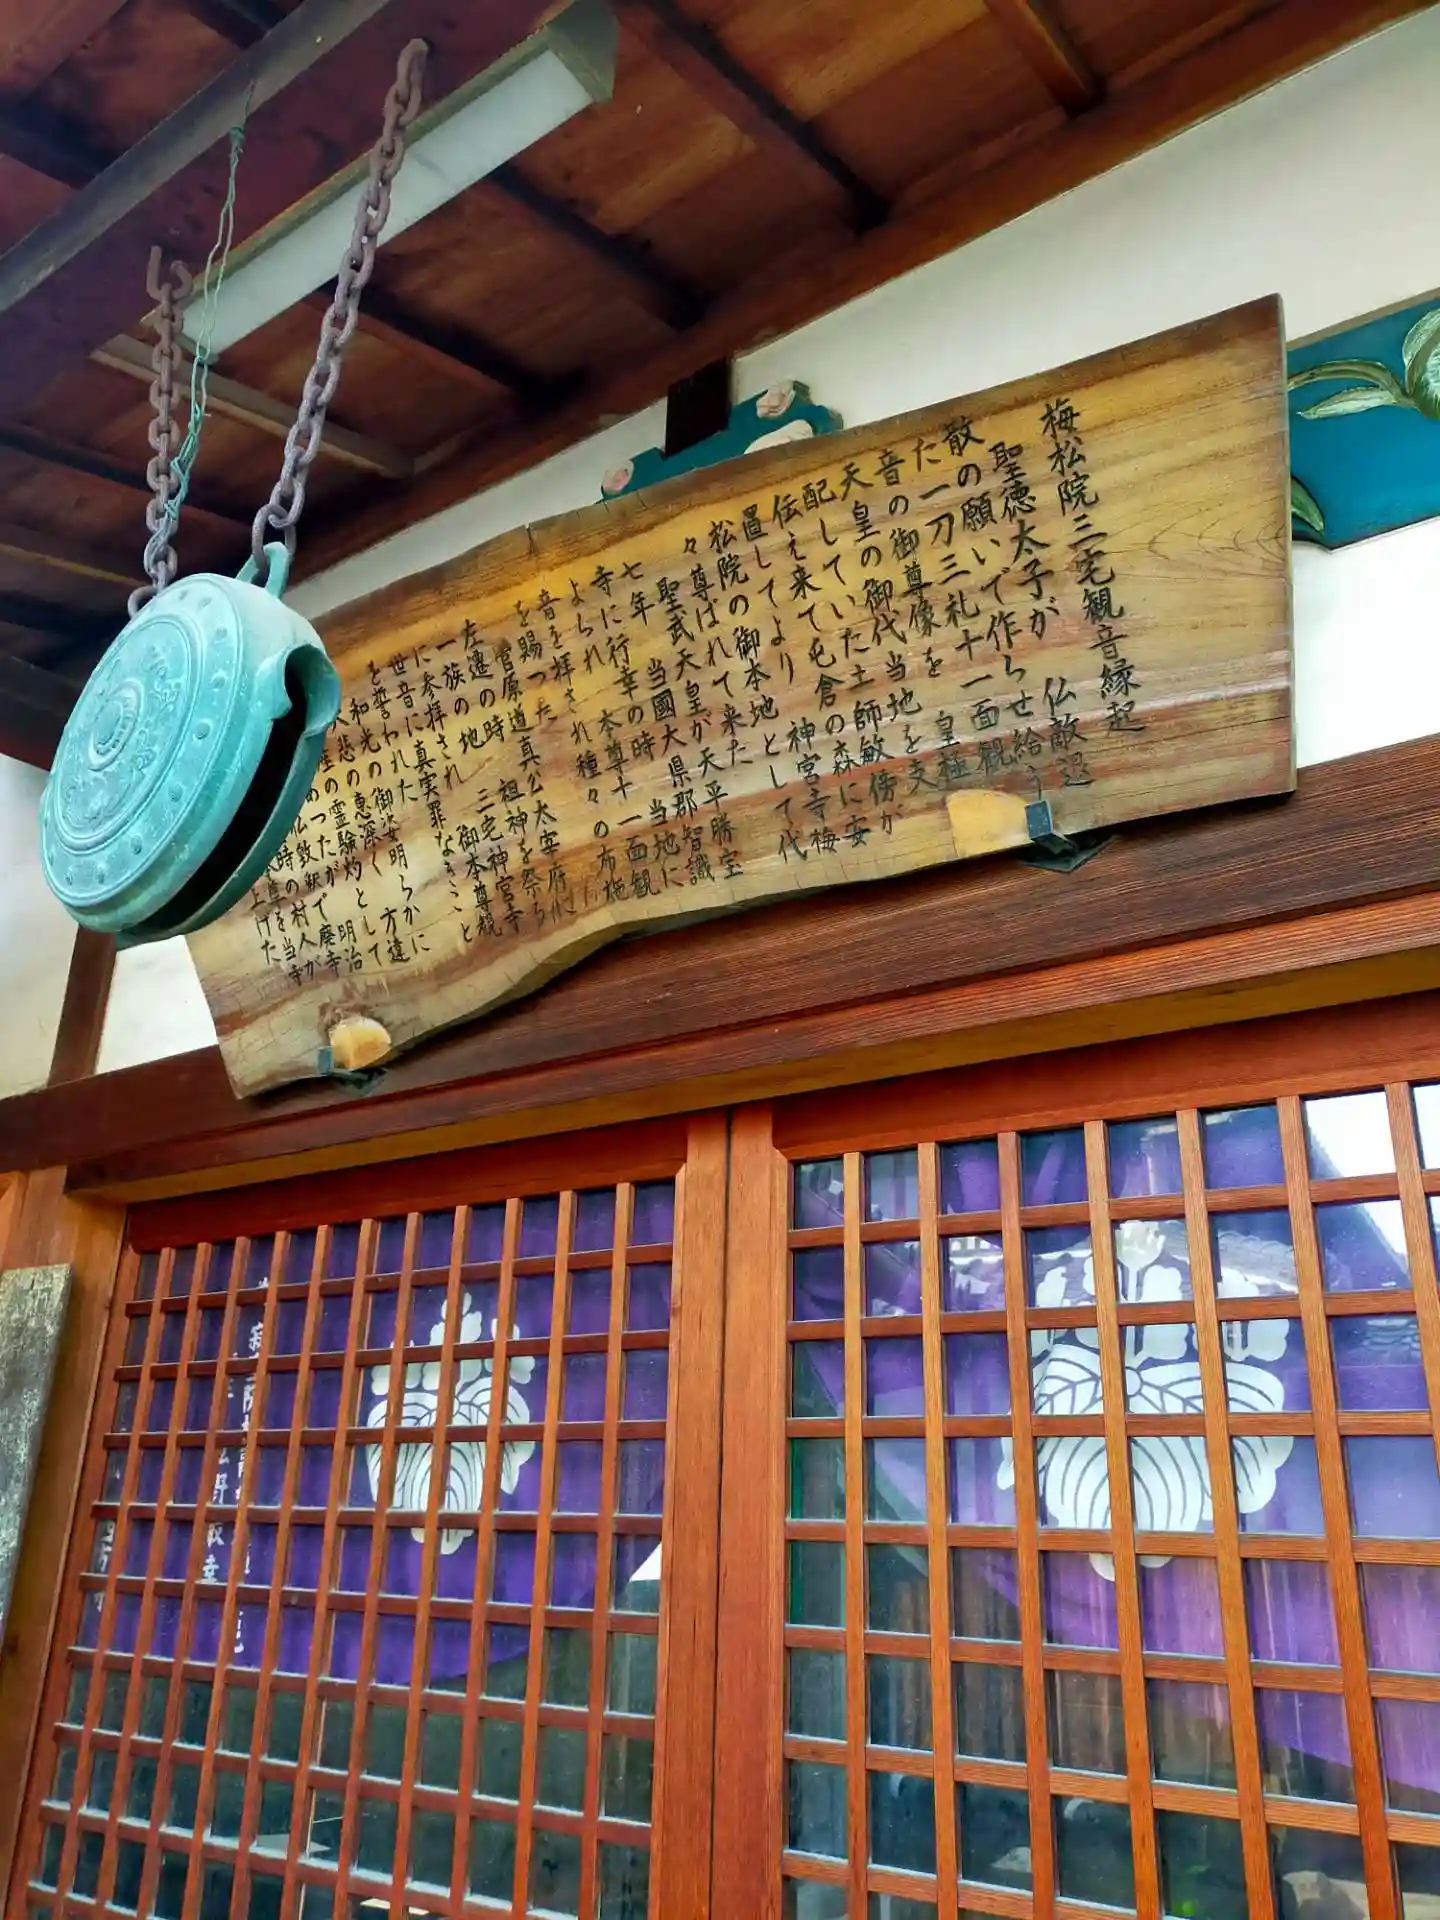 梅松院三宅観音縁起
聖徳太子が 仏敵退
散の願いで作らせ給う
た一刀三礼十一面観
音の御尊像を 皇極
天皇の御代当地を支
配していた土師敏傍が
伝え来て屯倉の森に安
置してより 神宮寺梅
松院の御本地として代
々尊ばれて来た
聖武天皇が天平勝宝
七年 当國大県郡智識
寺に行幸の時 当地に
よられ 本尊十一面観
音を拝され種々の布施
を賜つた
官原道真公太宰府に
左遷の時 祖神を祭る
一族の地 三宅神宮寺
に参拝され 御本尊観
世音に真実罪なきこと
を誓われた
和光の御姿明らかに
大悲の恵深く 方違
の霊験灼として
めつたが 明治
仏毀釈で廃寺
時の村人が
を当寺
上げた